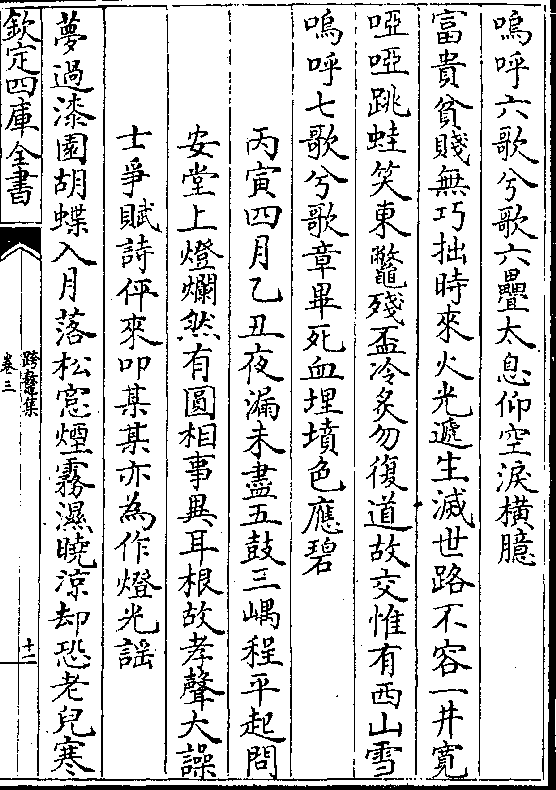 嗚呼六歌兮歌六疊太息仰空淚橫臆
富貴貧賤無巧拙時來火光遞生滅世路不容一井寛
啞啞跳蛙笑東鼈殘盃冷炙勿復道故交惟有西山雪
嗚呼七歌兮歌章畢死血埋墳色應碧
丙寅四月乙丑夜漏未盡五鼓三嵎程平起問
安堂上燈爛然有圓相事異耳根故孝聲大譟
士爭賦詩伻來叩某某亦為作燈光謡
夢過漆園胡蝶入月落松窓煙霧濕曉涼却恐老兒寒
欽定四庫全書
跨鼇集
卷三
十二